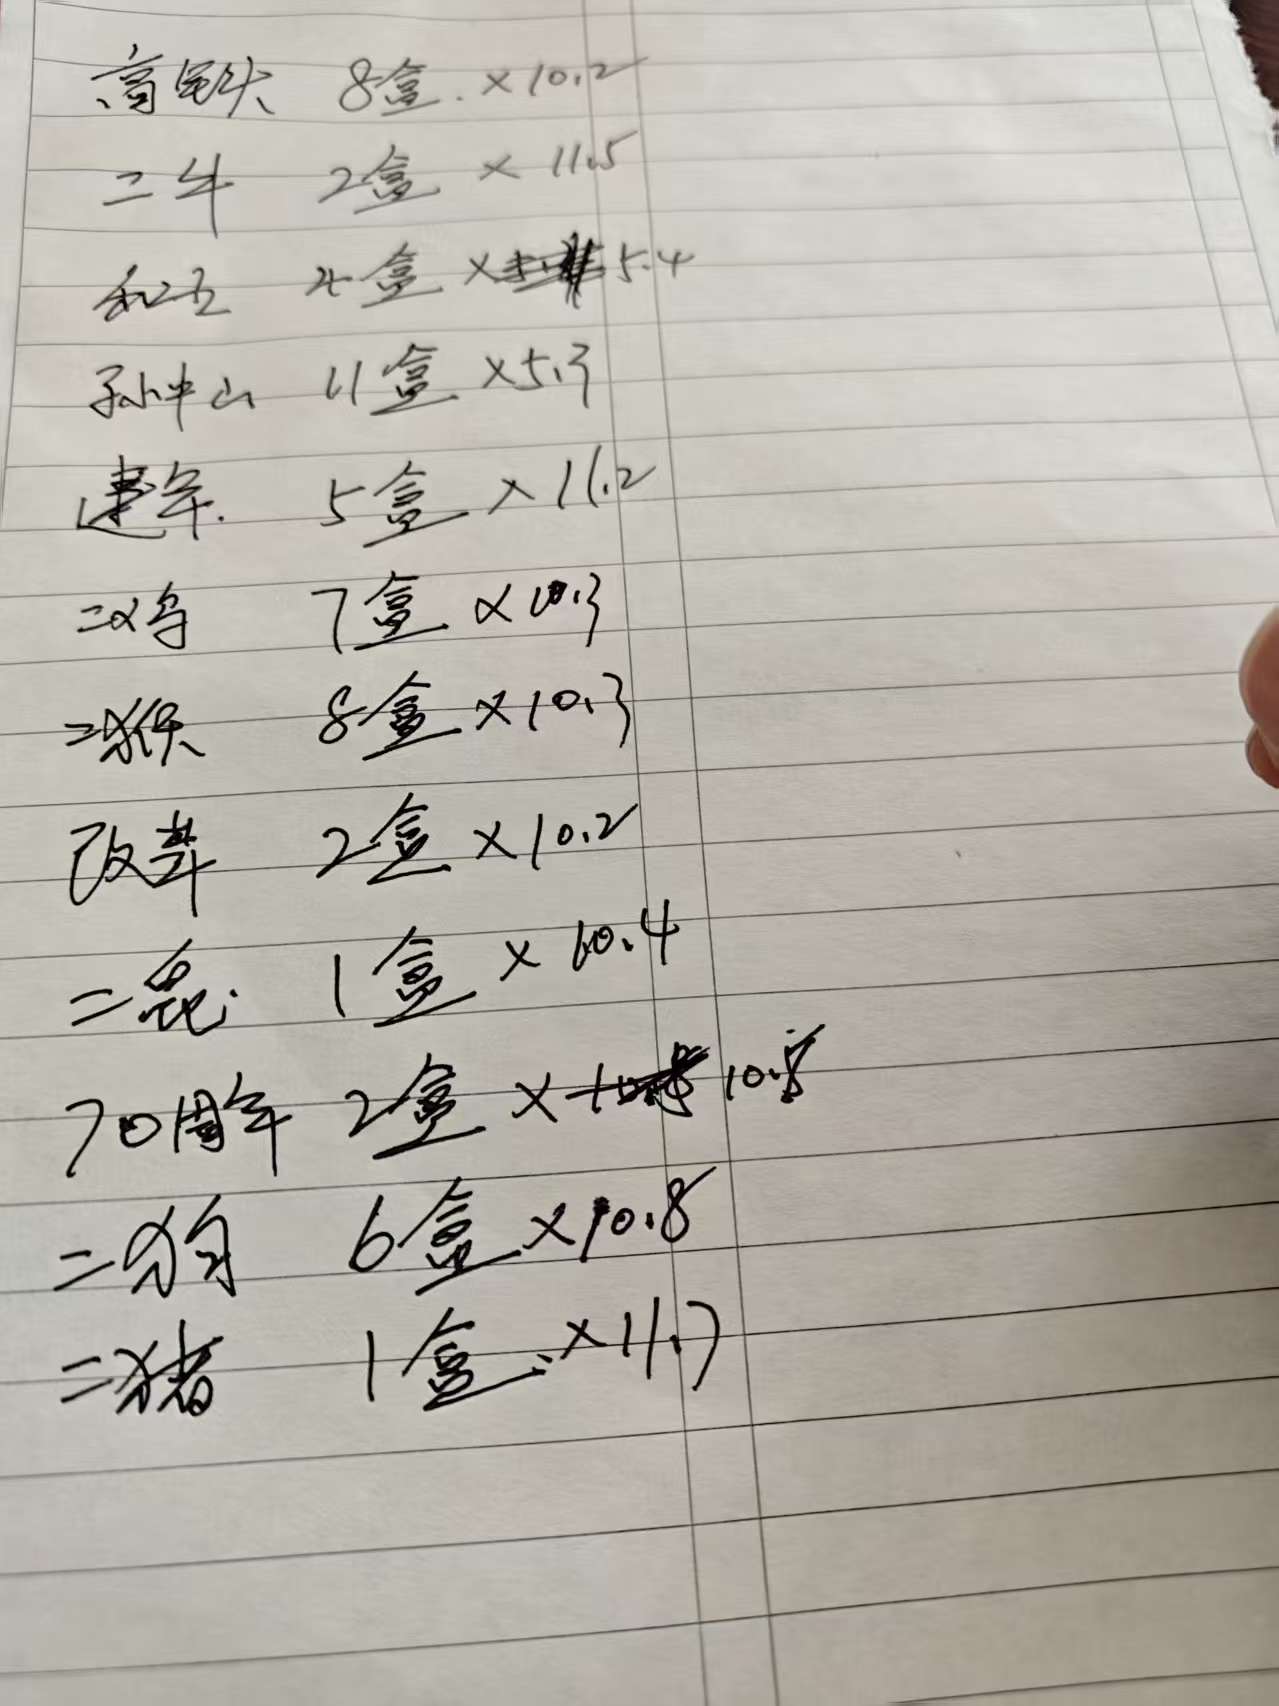 高铁 8盒.×10.2
二牛 2盒 × 11.5
和五 4盒 × 5.4
孙中山 11盒 ×5.3
建军. 5盒 ×11.2
二鸡 7盒 ×10.3
二猴 8盒 ×10.3
改革 2盒 ×10.2
二兔. 1盒 × 10.4
70周年 2盒 × 10.5
二狗 6盒 ×10.8
二猪 1盒.×11.7